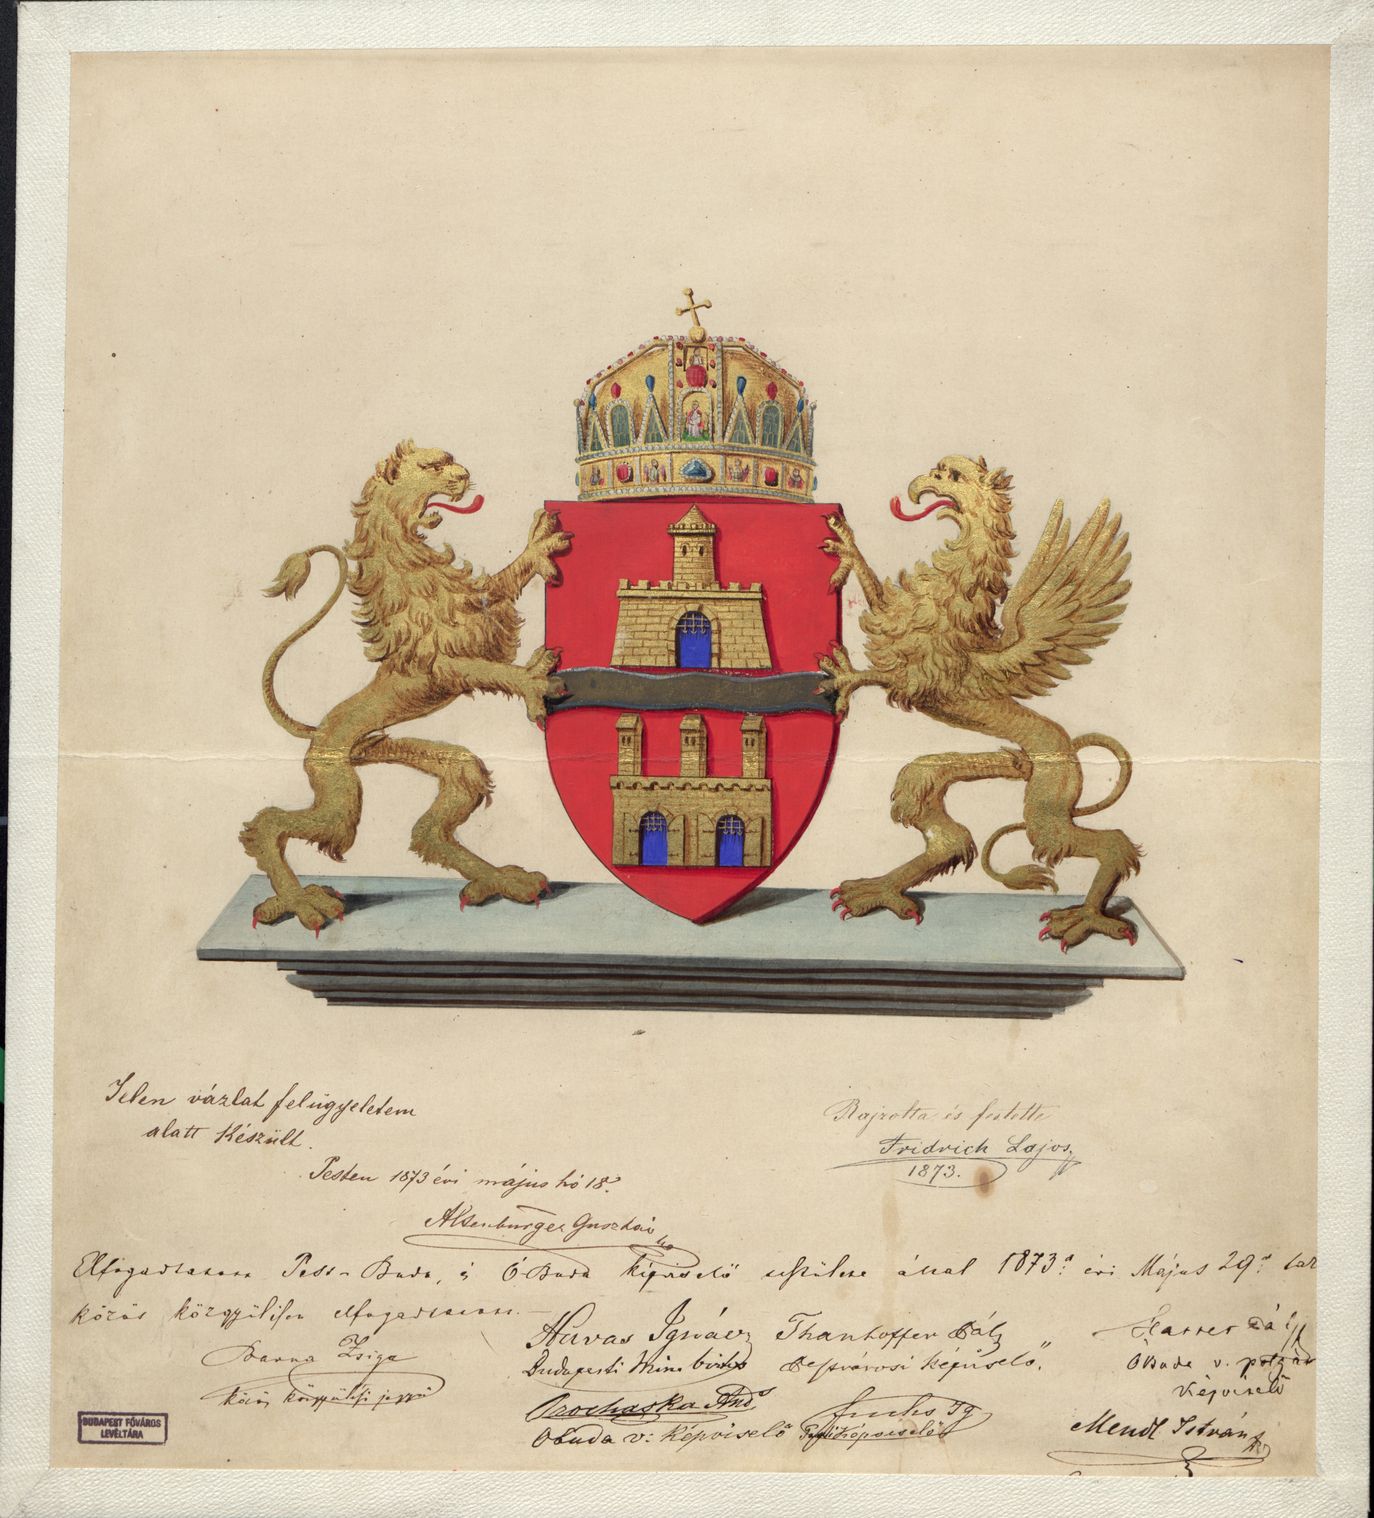 Jelen vázlat felügyeletem
alatt készült.
Pesten 1873 évi május hó 18.
Altenburger Gusztáv
Rajzolta és festette
Fridrich Lajos
1873.
Elfogadtatott Pest-Buda, és Ó Buda képviselő által 1873. évi Május 29.
közös közgyülésen elfogadtatott.
Barna Zsiga
közös közgyülési jegyző
Havas Ignácz
Budapesti
Thanhoffer Pál
képviselő.
Harrer Pál
Óbuda v. polgár
képviselő
Prochaska
Óbuda v: képviselő
Fuchs Ig
Mendl István
BUDAPEST FŐVÁROS
LEVÉLTÁRA